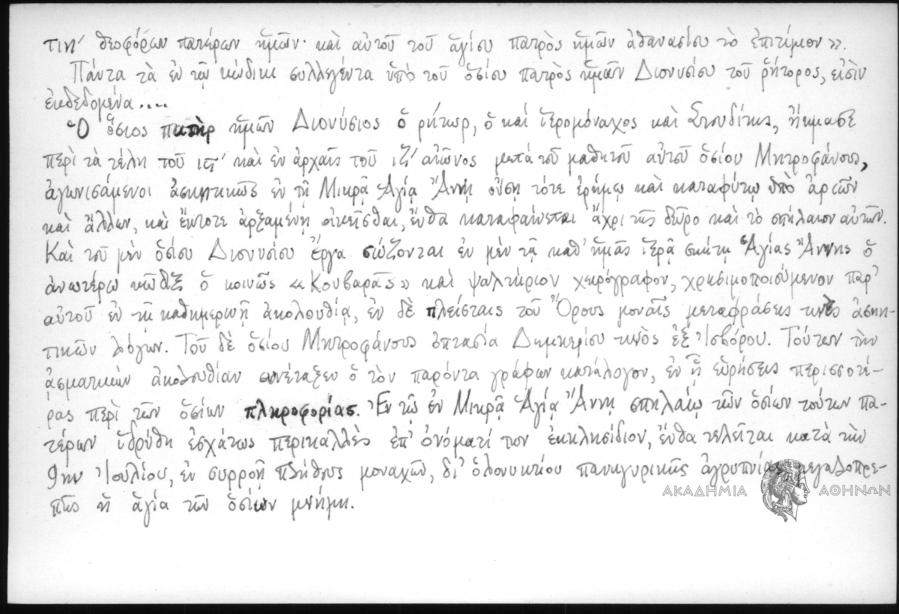 τιη´ θεοφόρων πατέρων ἡμῶν· καὶ αὐτοῦ τοῦ ἁγίου πατρὸς ἡμῶν ἀθανασίου τὸ ἐπιτίμιον».
Πάντα τὰ ἐν τῷ κώδικι συλλεγέντα ὑπὸ τοῦ ὁσίου πατρὸς ἡμῶν Διονυσίου τοῦ ῥήτορος, εἰσὶν
ἐκδεδομένα....
Ὁ ὅσιος πατὴρ ἡμῶν Διονύσιος ὁ ῥήτωρ, ὁ καὶ ἱερομόναχος καὶ Στουδίτης, ἤκμασε
περὶ τὰ τέλη τοῦ ιστ´ καὶ ἐν ἀρχαῖς τοῦ ιζ´ αἰῶνος μετὰ τοῦ μαθητοῦ αὐτοῦ ὁσίου Μητροφάνους,
ἀγωνισάμενοι ἀσκητικῶς ἐν τῇ Μικρᾷ Ἁγίᾳ Ἄννῃ οὔσῃ τότε ἐρήμῳ καὶ καταφύτῳ ὑπὸ ἀριῶν
καὶ ἄλλων, καὶ ἔκτοτε ἀρξαμένῃ οἰκεῖσθαι, ἔνθα καταφαίνεται ἄχρι τῆς δεῦρο καὶ τὸ σπήλαιον αὐτῶν.
Καὶ τοῦ μὲν ὁσίου Διονυσίου ἔργα σώζονται ἐν μὲν τῇ καθ' ἡμᾶς ἱερᾷ σκήτῃ Ἁγίας Ἄννης ὁ
ἀνωτέρω κῶδιξ ὁ κοινῶς «Κουβαρᾶς» καὶ ψαλτήριον χειρόγραφον, χρησιμοποιούμενον παρ'
αὐτοῦ ἐν τῇ καθημερινῇ ἀκολουθίᾳ, ἐν δὲ πλείσταις τοῦ Ὄρους μοναῖς μεταφράσεις τινὲς ἀσκη-
τικῶν λόγων. Τοῦ δὲ ὁσίου Μητροφάνους ὀπτασία Δημητρίου τινὸς ἐξ Ἰσβόρου. Τούτων τὴν
ᾀσματικὴν ἀκολουθίαν συνέταξεν ὁ τὸν παρόντα γράφων κατάλογον, ἐν ᾗ εὑρήσεις περισσοτέ-
ρας περὶ τῶν ὁσίων πληροφορίας. Ἐν τῷ ἐν Μικρᾷ Ἁγίᾳ Ἄννῃ σπηλαίῳ τῶν ὁσίων τούτων πα-
τέρων ἱδρύθη ἐσχάτως περικαλλὲς ἐπ' ὀνόματί των ἐκκλησίδιον, ἔνθα τελεῖται κατὰ τὴν
9ην Ἰουλίου, ἐν συρροῇ πλήθους μοναχῶν, δι' ὁλονυκτίου πανηγυρικῆς ἀγρυπνίας μεγαλοπρε-
πῶς ἡ ἁγία τῶν ὁσίων μνήμη.
ΑΚΑΔΗΜΙΑ ΑΘΗΝΩΝ